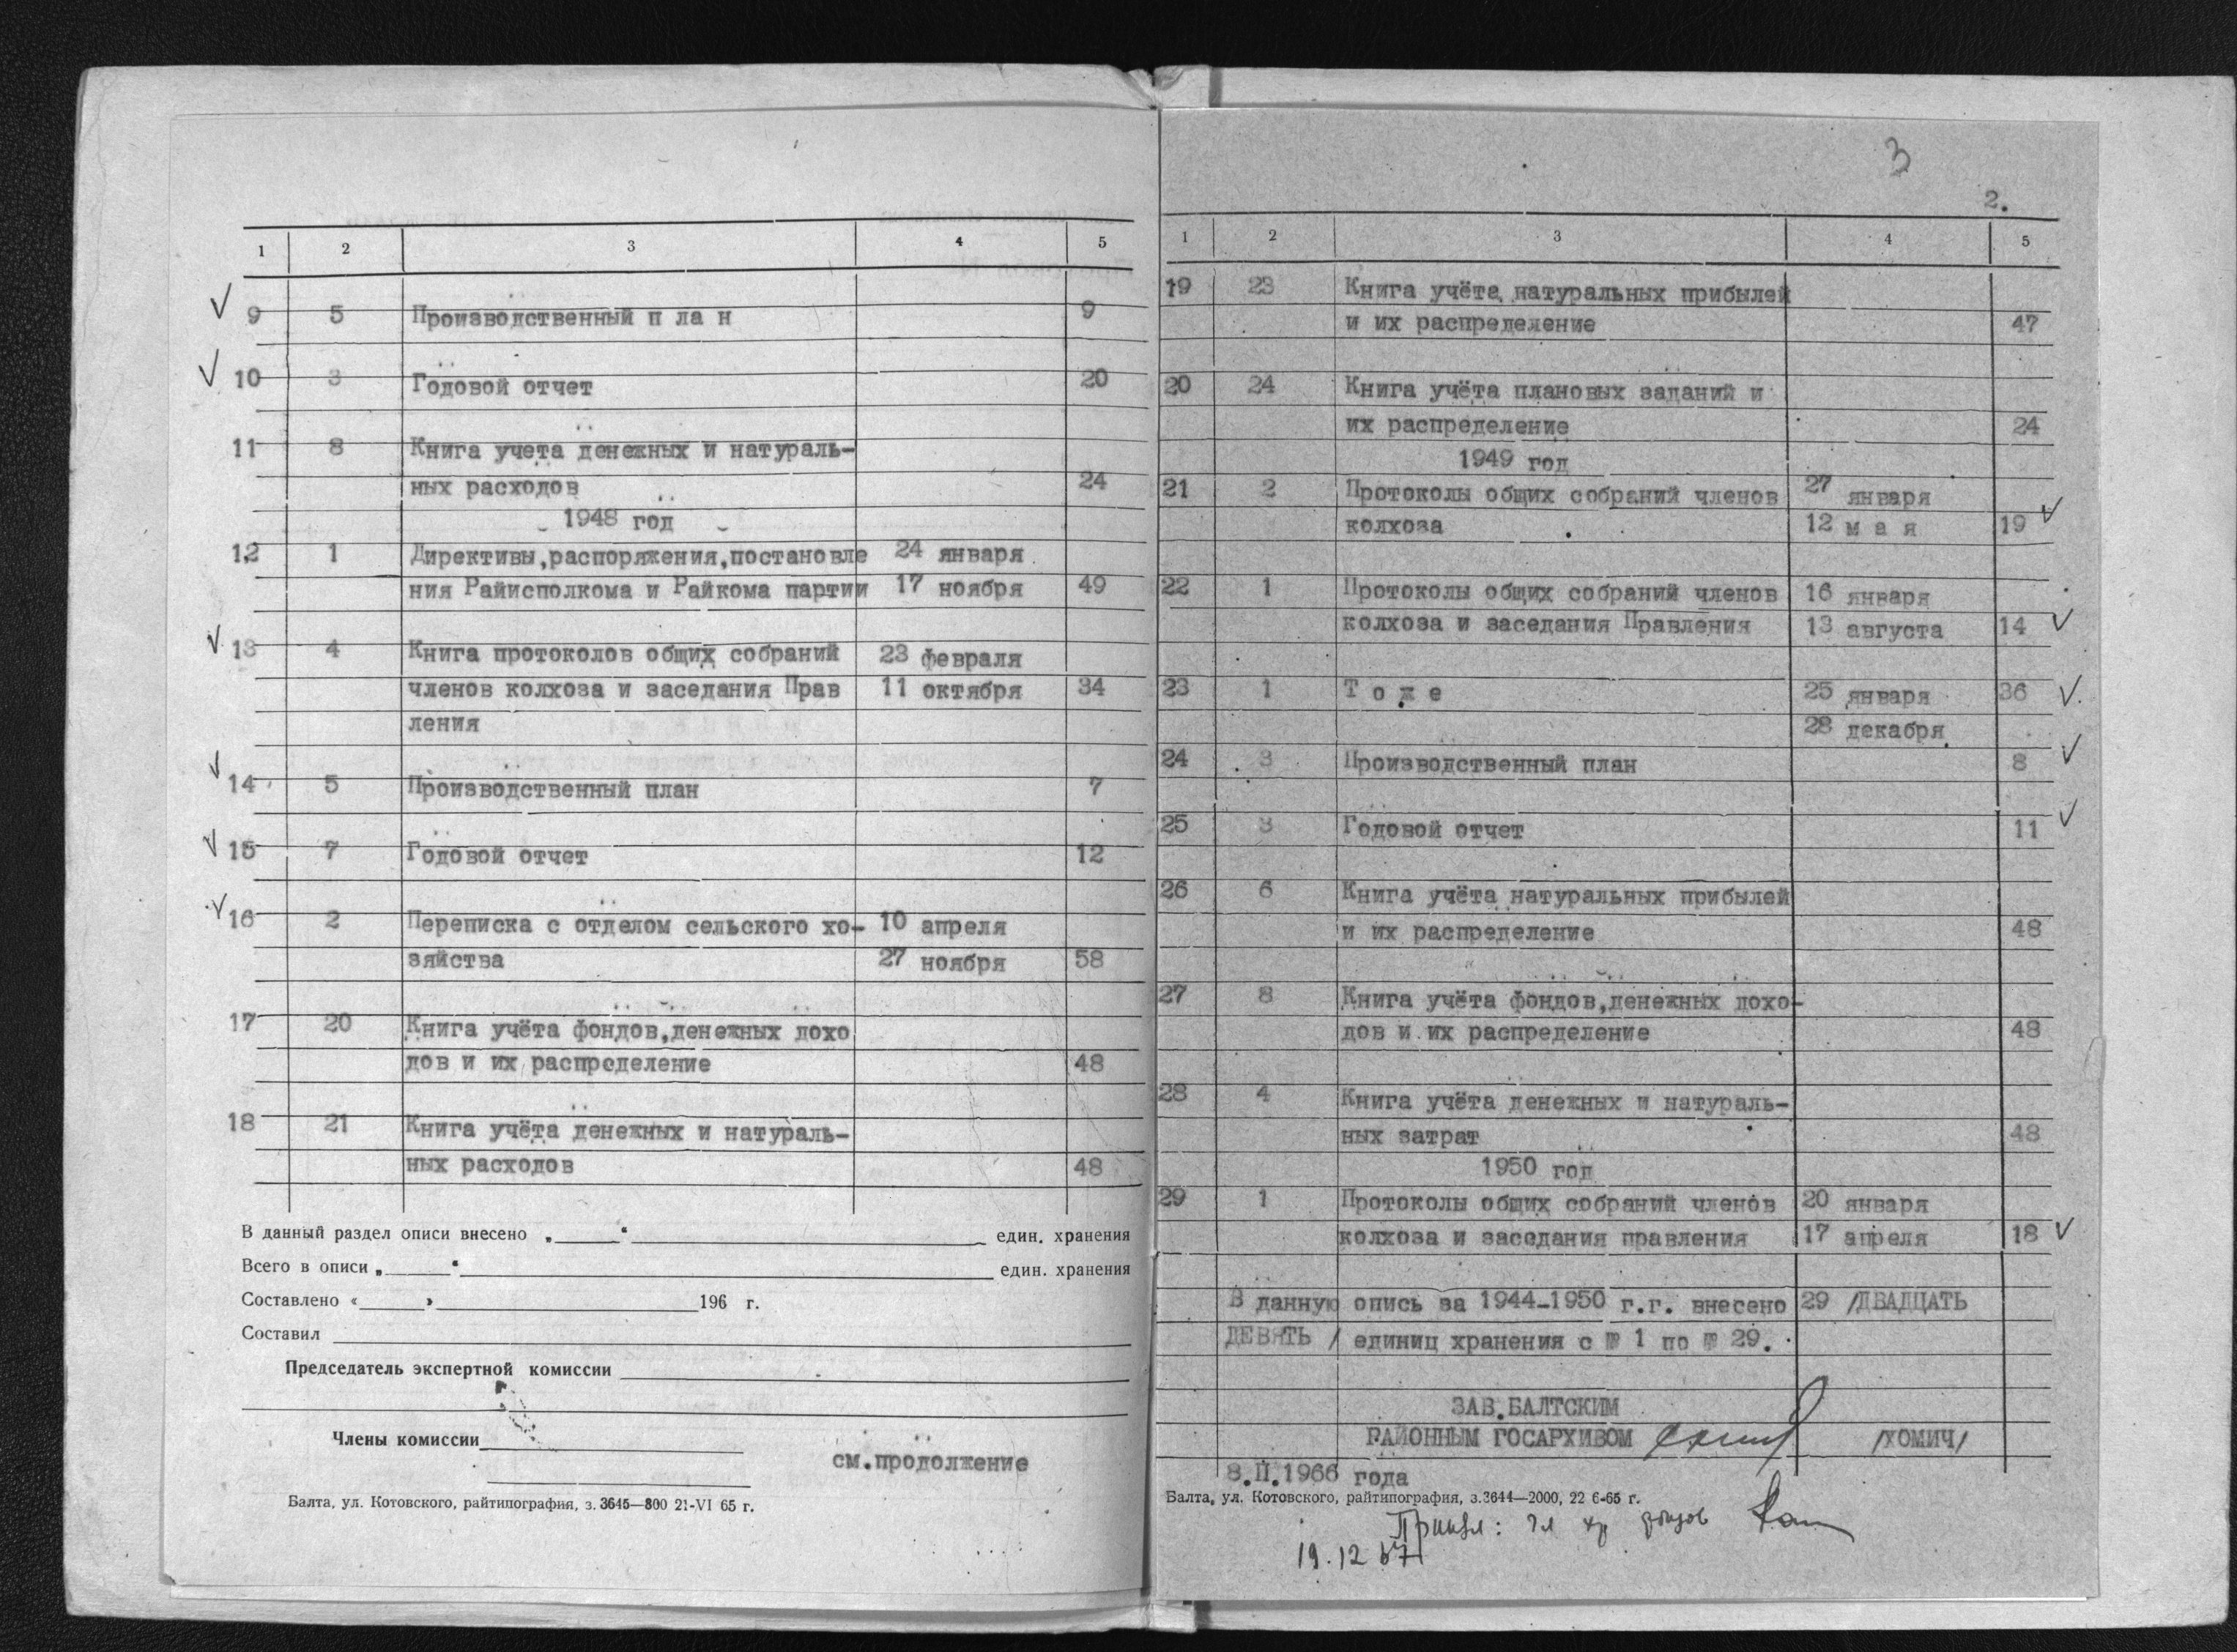 1 2 3 4 5
9 5 Производственный п ла н 9
10 3 Годовой отчет 20
11 8 Книга учета денежных и натураль-
ных расходов 24
1948 год
12 1 Директивы,распоряжения,постановле 24 января
ния Райисполкома и Райкома партии 17 ноября 49
13 4 Книга протоколов общих собраний 23 февраля
членов колхоза и заседания Прав 11 октября 34
ления
14 5 Производственный план 7
15 7 Годовой отчет 12
16 2 Переписка с отделом сельского хо- 10 апреля
зяйства 27 ноября 58
17 20 Книга учёта фондов,денежных дохо
дов и их распределение 48
18 21 Книга учёта денежных и натураль-
ных расходов 48
В данный раздел описи внесено „ “ един. хранения
Всего в описи „ “ един. хранения
Составлено « » 196 г.
Составил
Председатель экспертной комиссии
Члены комиссии
см.продолжение
Балта, ул. Котовского, райтипография, з. 3645—800 21-VI 65 г.
3
2.
1 2 3 4 5
19 23 Книга учёта натуральных прибылей
и их распределение 47
20 24 Книга учёта плановых заданий и
их распределение 24
1949 год
21 2 Протоколы общих собраний членов 27 января
колхоза 12 м а я 19
22 1 Протоколы общих собраний членов 16 января
колхоза и заседания Правления 13 августа 14
23 1 Т о ж е 25 января 36
28 декабря
24 3 Производственный план 8
25 3 Годовой отчет 11
26 6 Книга учёта натуральных прибылей
и их распределение 48
27 8 Книга учёта фондов,денежных дохо-
дов и их распределение 48
28 4 Книга учёта денежных и натураль-
ных затрат 48
1950 год
29 1 Протоколы общих собраний членов 20 января
колхоза и заседания правления 17 апреля 18
В данную опись за 1944-1950 г.г. внесено 29 /ДВАДЦАТЬ
ДЕВЯТЬ / единиц хранения с № 1 по № 29.
ЗАВ.БАЛТСКИМ
РАЙОННЫМ ГОСАРХИВОМ /ХОМИЧ/
8.II.1966 года
Балта, ул. Котовского, райтипография, з.3644—2000, 22 6-65 г.
19.12 67